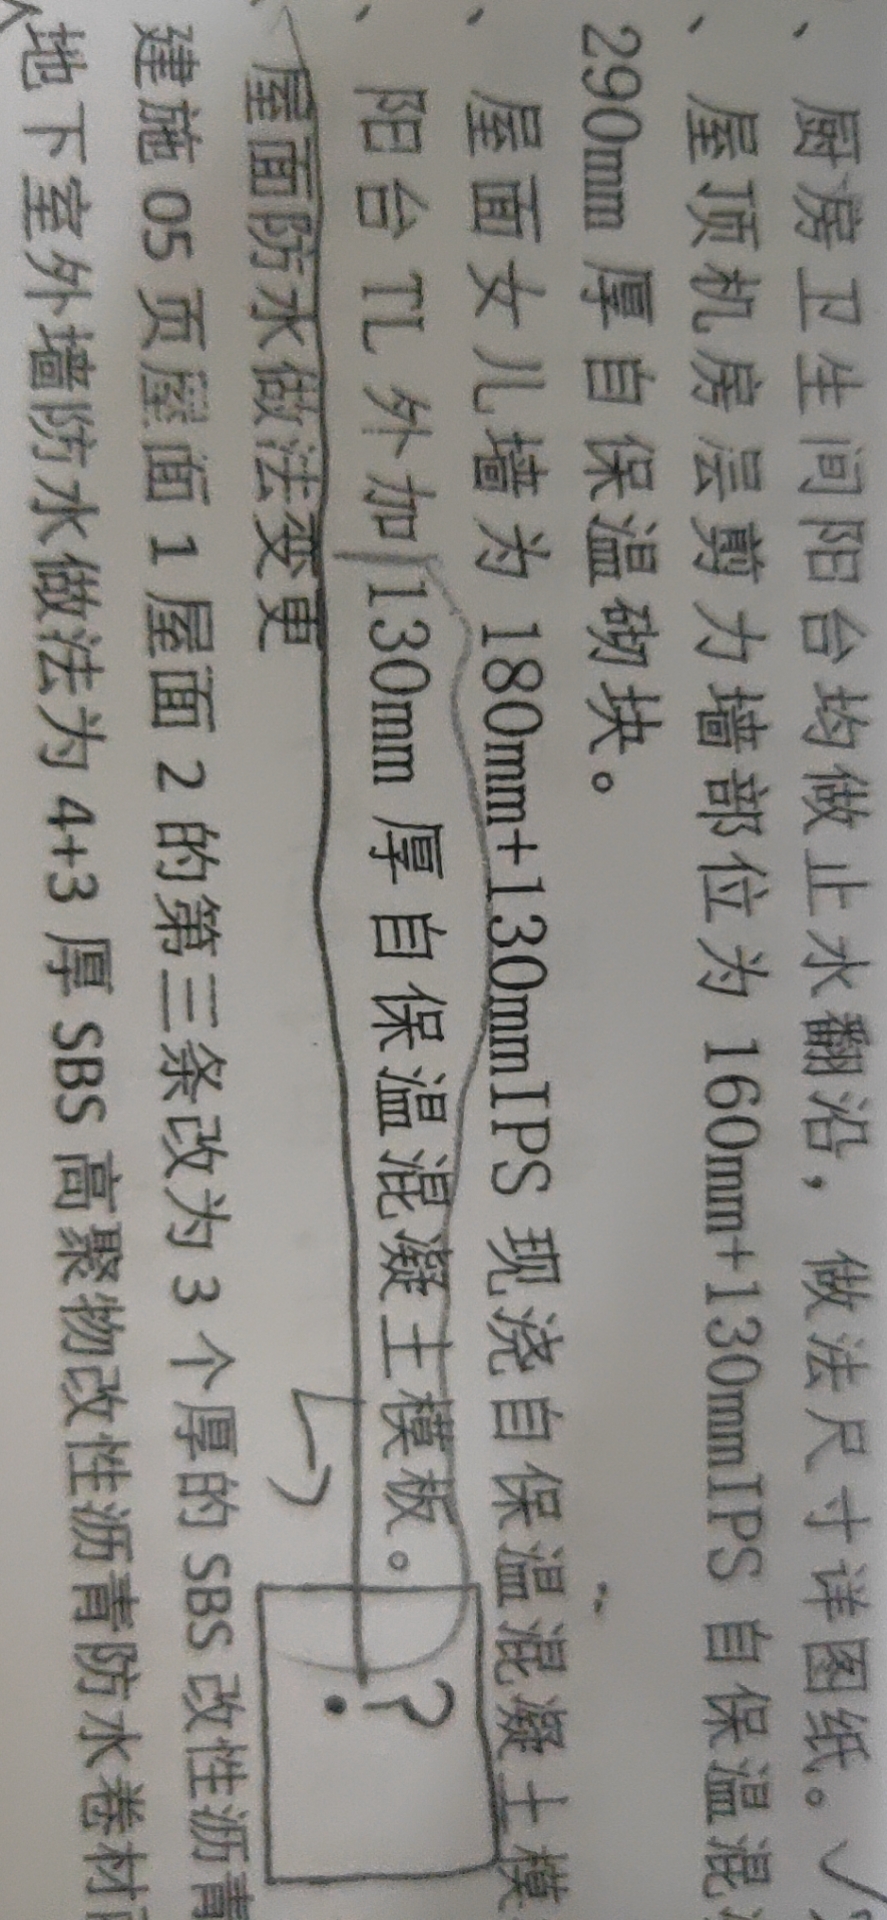 、厨房卫生间阳台均做止水翻沿，做法尺寸详图纸。
、屋顶机房层剪力墙部位为 160mm+130mmIPS 自保温混
290mm 厚自保温砌块。
、屋面女儿墙为 180mm+130mmIPS 现浇自保温混凝土模
、阳台 TL 外加 130mm 厚自保温混凝土模板。
?
屋面防水做法变更
建施 05 页屋面 1 屋面 2 的第三条改为 3 个厚的 SBS 改性沥青
地下室外墙防水做法为 4+3 厚 SBS 高聚物改性沥青防水卷材